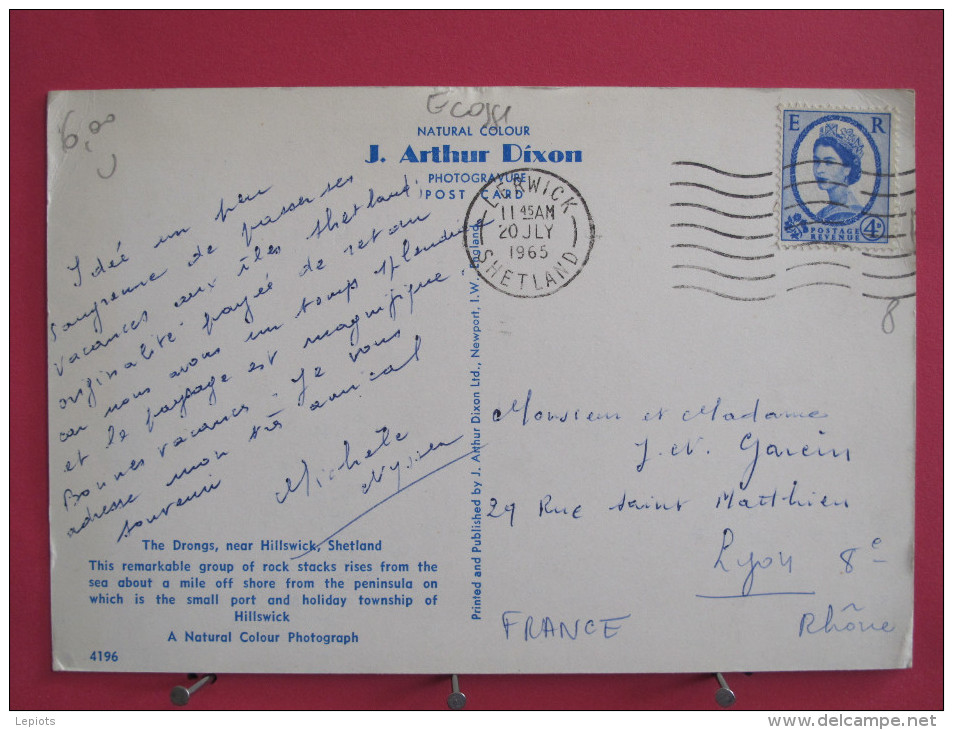 6,00
Ecosse
NATURAL COLOUR
J. Arthur Dixon
PHOTOGRAVURE
POST CARD
Idée un peu
saugrenue de passer ses
vacances aux îles Shetland;
originalité payée de retour
car nous avons un temps splendide
et le paysage est magnifique.
Bonnes vacances. Je vous
adresse mon très amical
souvenir
Michèle
The Drongs, near Hillswick, Shetland
This remarkable group of rock stacks rises from the
sea about a mile off shore from the peninsula on
which is the small port and holiday township of
Hillswick
A Natural Colour Photograph
4196
Printed and Published by J. Arthur Dixon Ltd., Newport, I.W., England.
LERWICK
11 45 AM
20 JLY
1965
SHETLAND
E R
POSTAGE
REVENUE
4D
8
Monsieur et Madame
J. et. Garcin
29 Rue Saint Matthieu
Lyon 8e
FRANCE
Rhône
Lepiots
www.delcampe.net